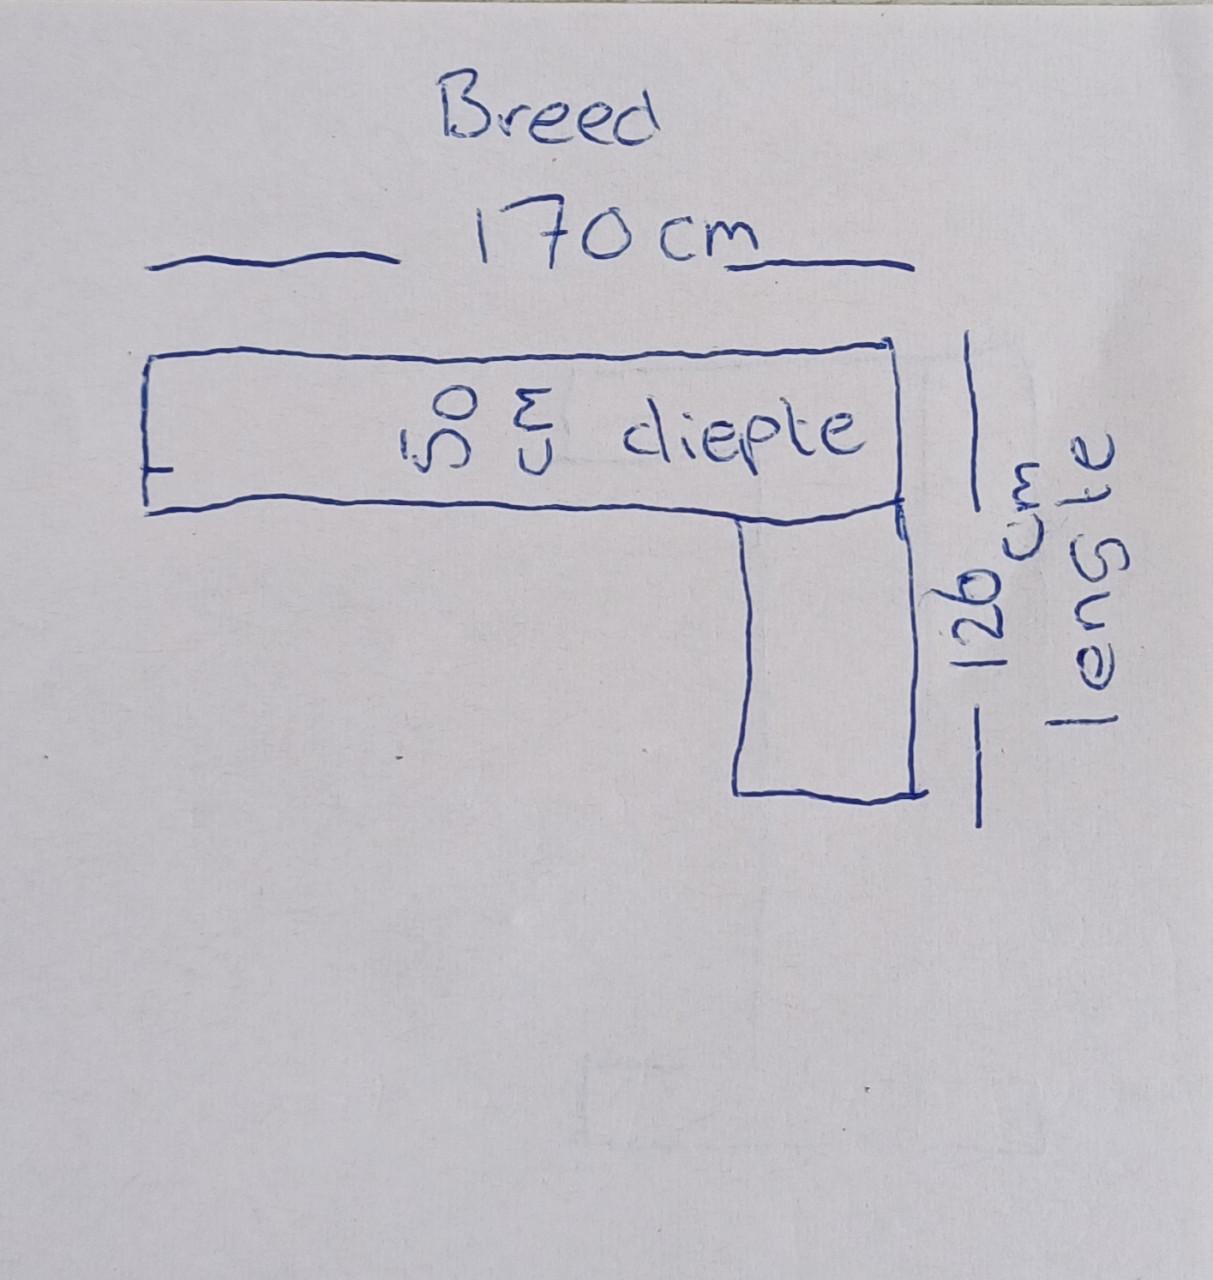 Breed
170 cm
50 cm diepte
126 cm
lengte